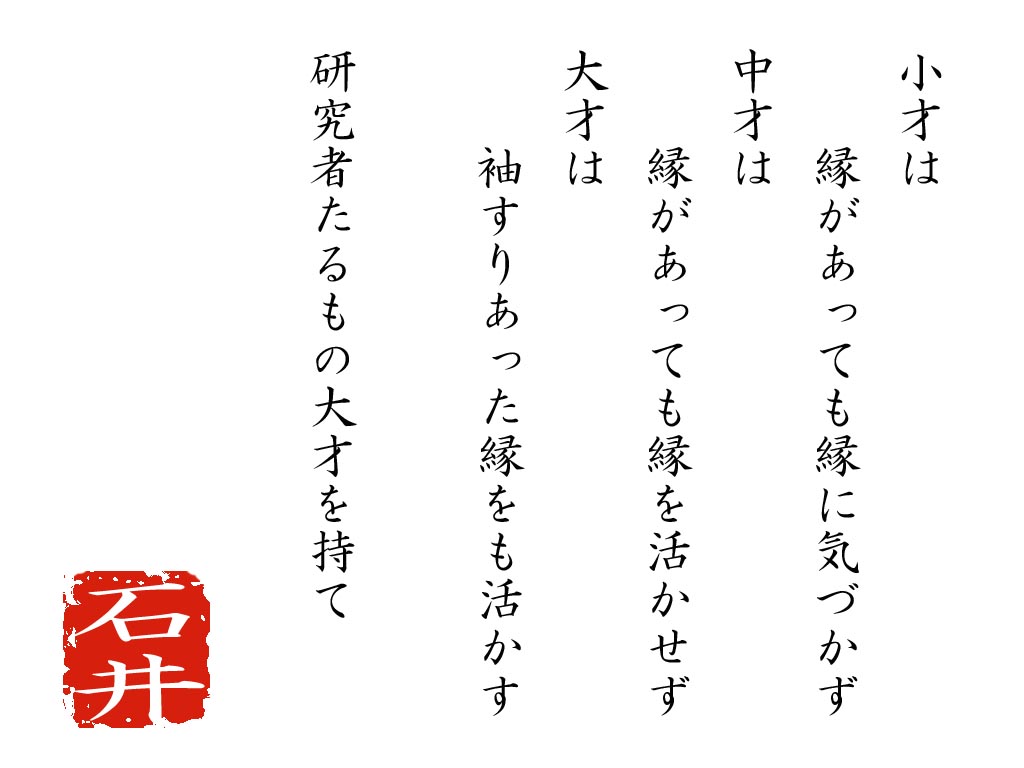 小才は
縁があっても縁に気づかず
中才は
縁があっても縁を活かせず
大才は
袖すりあった縁をも活かす
研究者たるもの大才を持て
石井